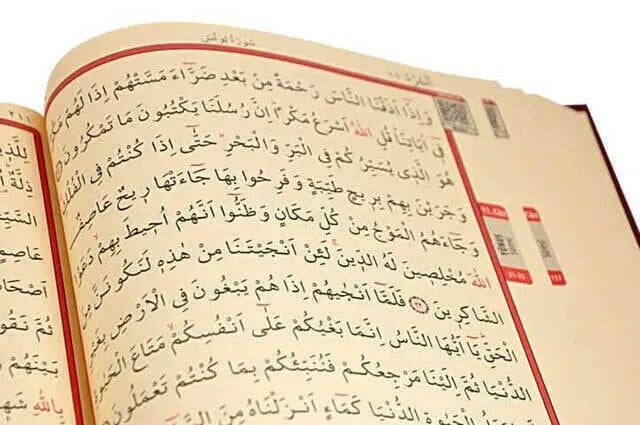 سُورَةُ يُونُسَ
وَاِذَٓا اَذَقْنَا النَّاسَ رَحْمَةً مِنْ بَعْدِ ضَرَّٓاءَ مَسَّتْهُمْ اِذَا لَهُمْ مَكْ
فٖٓى اٰيَاتِنَا قُلِ اللّٰهُ اَسْرَعُ مَكْرًا اِنَّ رُسُلَنَا يَكْتُبُونَ مَا تَمْكُرُونَ
هُوَ الَّذٖى يُسَيِّرُكُمْ فِى الْبَرِّ وَالْبَحْرِ حَتّٰٓى اِذَا كُنْتُمْ فِى الْفُلْكِ
وَجَرَيْنَ بِهِمْ بِرٖيحٍ طَيِّبَةٍ وَفَرِحُوا بِهَا جَٓاءَتْهَا رٖيحٌ عَاصِفٌ
وَجَٓاءَهُمُ الْمَوْجُ مِنْ كُلِّ مَكَانٍ وَظَنُّٓوا اَنَّهُمْ اُحٖيطَ بِهِمْ دَعَوُا
اللّٰهَ مُخْلِصٖينَ لَهُ الدّٖينَ لَئِنْ اَنْجَيْتَنَا مِنْ هٰذِهٖ لَنَكُونَنَّ مِنَ
الشَّاكِرٖينَ ٢٢ فَلَمَّٓا اَنْجٰيهُمْ اِذَا هُمْ يَبْغُونَ فِى الْاَرْضِ بِغَيْرِ
الْحَقِّ يَٓا اَيُّهَا النَّاسُ اِنَّمَا بَغْيُكُمْ عَلٰٓى اَنْفُسِكُمْ مَتَاعَ الْحَيٰوةِ
الدُّنْيَا ثُمَّ اِلَيْنَا مَرْجِعُكُمْ فَنُنَبِّئُكُمْ بِمَا كُنْتُمْ تَعْمَلُونَ
الْحَيٰوةِ الدُّنْيَا كَمَٓاءٍ اَنْزَلْنَاهُ مِنَ
٢١١
لِلَّذٖي
ذِلَّةٌ
عَاصِمٍ
اَصْحَا
ثُمَّ نَقُو
بَيْنَهُمْ
بِاللّٰهِ شَهٖي